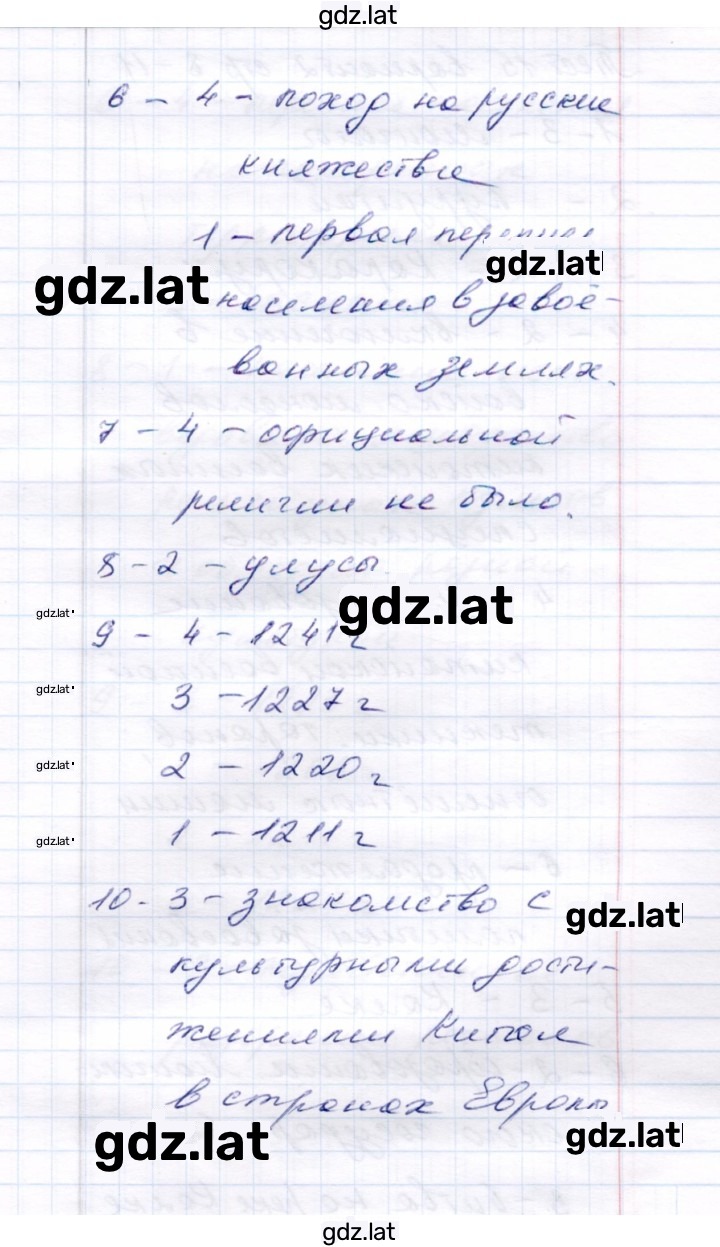 gdz.lat
6 – 4 – поход на русские
княжества
1 – первая
gdz.lat
gdz.lat
населения в завоё-
ванных землях.
7 – 4 – официальной
религии не было.
8 – 2 – улусы.
gdz.lat
gdz.lat
9 – 4 – 1241 г
gdz.lat
3 – 1227 г
gdz.lat
2 – 1220 г
gdz.lat
1 – 1211 г
10 - 3 – знакомство с
gdz.lat
культурными дости-
жениями Китая
в странах Европы
gdz.lat
gdz.lat
gdz.lat